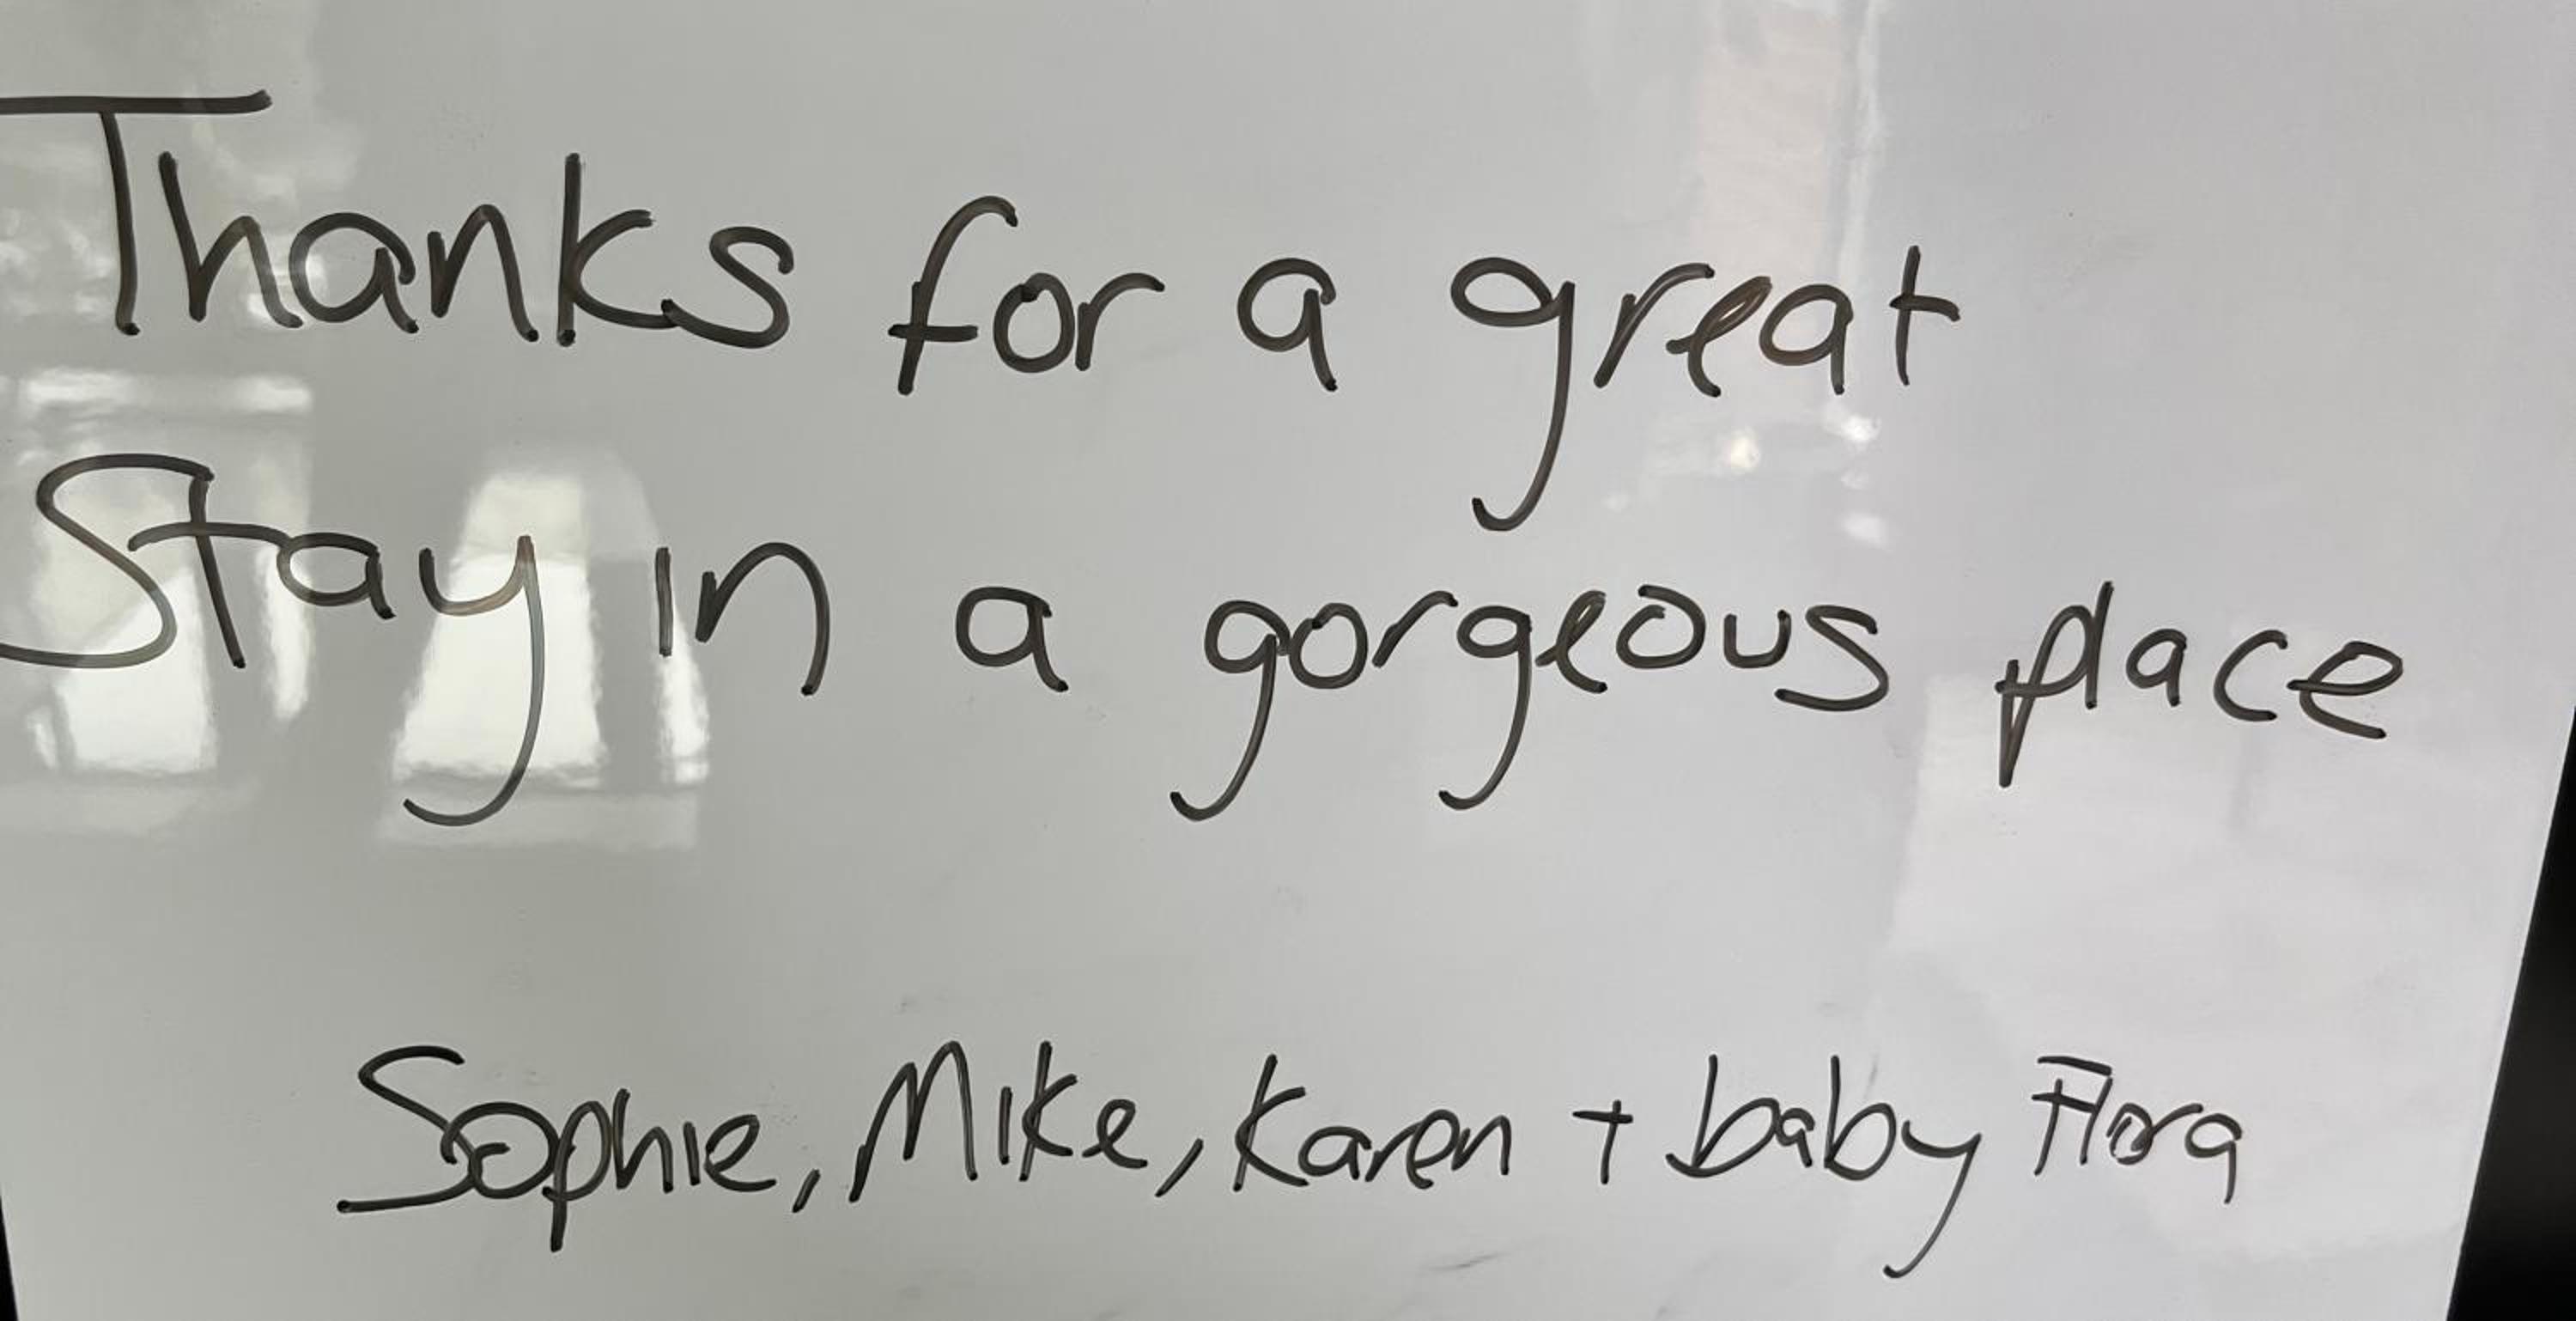 Thanks for a great
Stay in a gorgeous place
Sophie, Mike, Karen + baby Flora